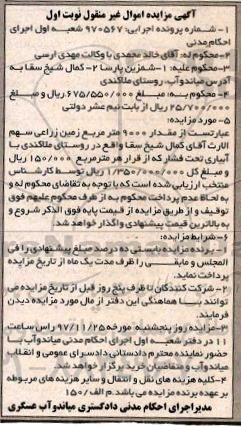 آگهی مزایده اموال غیر منقول نوبت اول
۱- شماره پرونده اجرایی: ۹۷۰۵۶۷ شعبه اول اجرای
احکام مدنی
۲- محکوم له: آقای خالد محمدی با وکالت مهدی ارسی
۳- محکوم علیه: ۱- شمزین پارسا ۲- کمال شیخ سقا به
آدرس میاندوآب، روستای ملاکندی
۴- محکوم به: مبلغ ۶۷۵/۵۵۰/۰۰۰ ریال و مبلغ
۲۵/۷۰۰/۰۰۰ ریال از بابت نیم عشر دولتی
۵- مورد مزایده:
عبارتست از مقدار ۹۰۰۰ متر مربع زمین زراعی سهم
الارث آقای کمال شیخ سقا واقع در روستای ملاکندی با
آبیاری تحت فشار که از قرار هر مترمربع ۱۵۰/۰۰۰ ریال
و مبلغ کل ۱/۳۵۰/۰۰۰/۰۰۰ ریال توسط کارشناس
منتخب ارزیابی شده است که با توجه به تقاضای محکوم له و
به لحاظ عدم پرداخت محکوم به از طرف محکوم علیهم فوق
توقیف و از طریق مزایده از قیمت پایه فوق الذکر شروع و
به بالاترین قیمت پیشنهادی واگذار خواهد شد.
۶- شرایط مزایده:
۱- برنده مزایده بایستی ده درصد مبلغ پیشنهادی را فی
المجلس و مابقی را ظرف مدت یک ماه از تاریخ مزایده
پرداخت نماید.
۲- شرکت کنندگان تا ظرف پنج روز قبل از تاریخ مزایده می
توانند با هماهنگی این دفتر از مال مورد مزایده دیدن
فرمایند.
۳- مزایده روز پنجشنبه مورخه ۹۷/۱۱/۲۵ راس ساعت
۱۱ در دفتر شعبه اول اجرای احکام مدنی میاندوآب با
حضور نماینده محترم دادستانی دادسرای عمومی و انقلاب
میاندوآب و متقاضیان خرید برگزار خواهد شد.
۴- کلیه هزینه های نقل و انتقال و سایر هزینه های مربوطه
بر عهده برنده مزایده می باشد. م الف/۱۵۰
مدیر اجرای احکام مدنی دادگستری میاندوآب عسگری